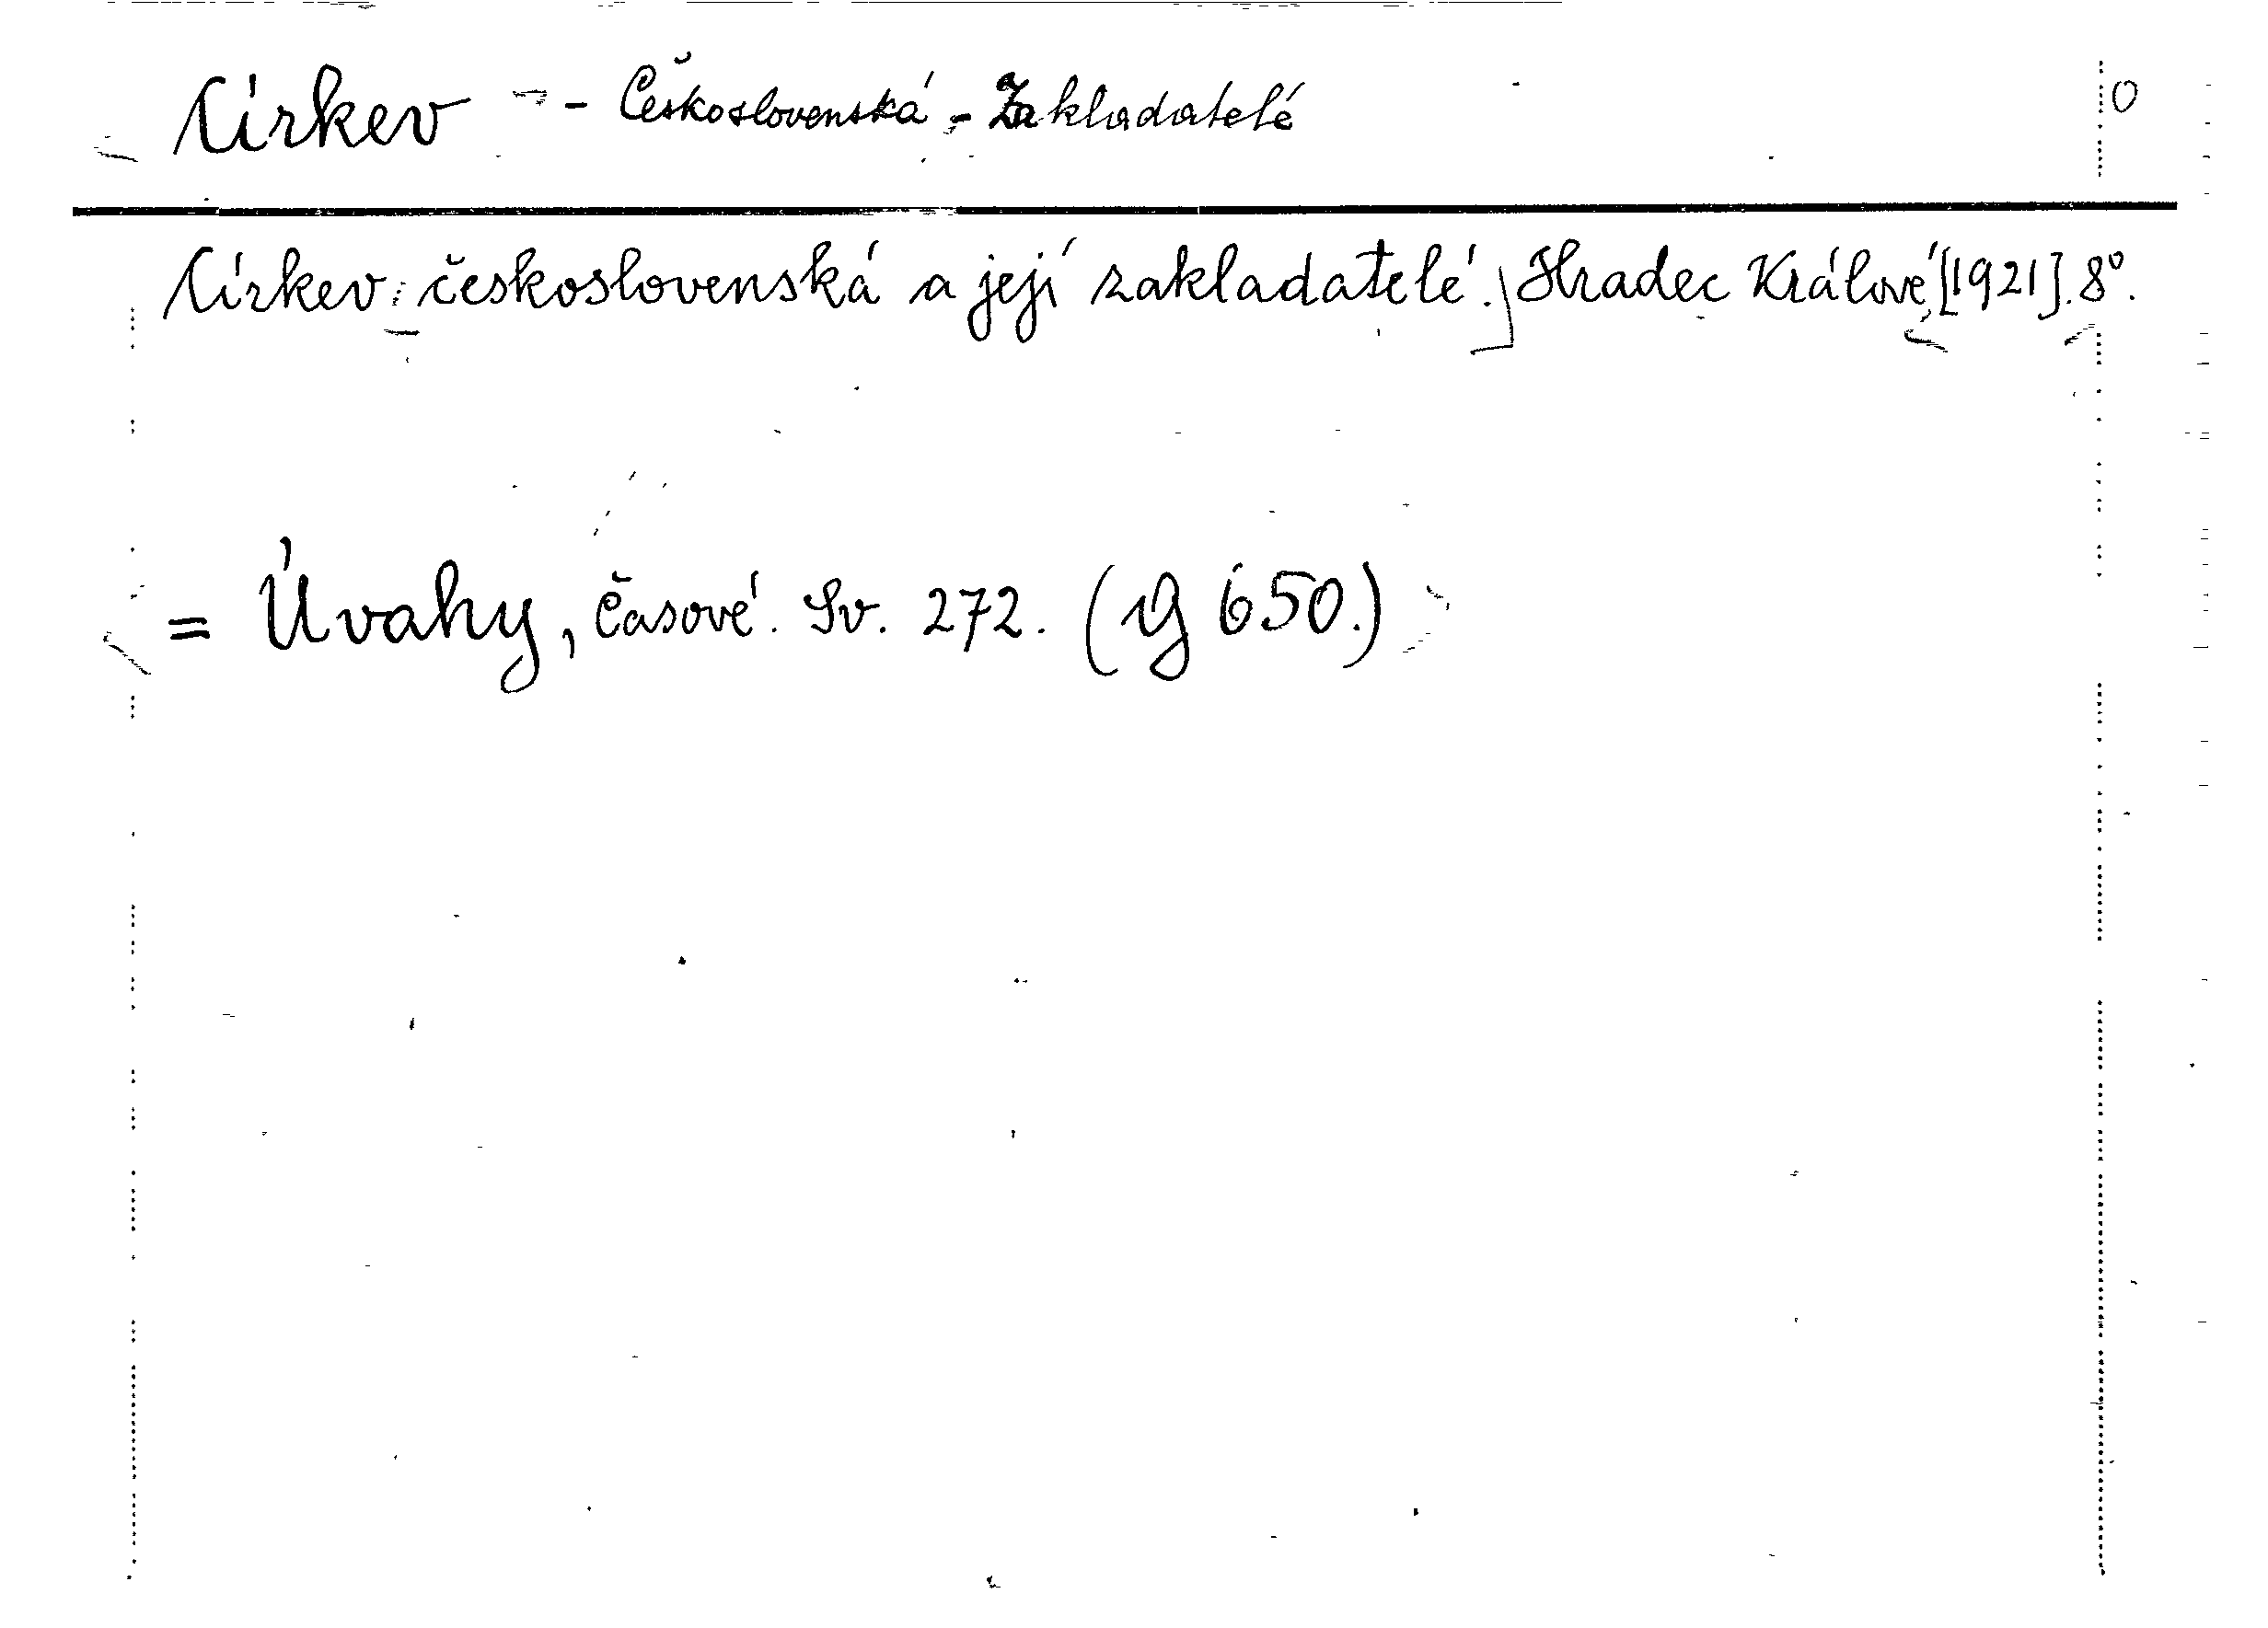 Církev - Československá - Zakladatelé 0
Církev československá a její zakladatelé.] Hradec Králové, [1921]. 8°.
= Úvahy, Časové. Sv. 272. (G 650.)